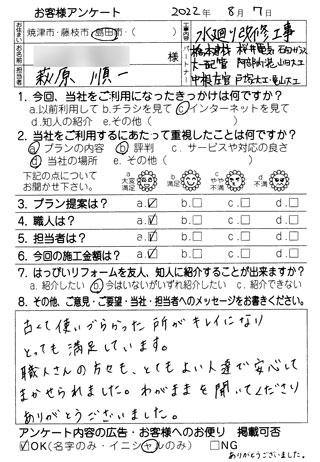 お客様アンケート 2022年 8月 7日
お住まい 焼津市・藤枝市・島田市・( )
工事内容 水廻り改修工事
お名前 様
担当者名 萩原 順一
パートナー
1. 今回、当社をご利用になったきっかけは何ですか?
a.以前利用して b.チラシを見て c.インターネットを見て
d.知人の紹介 e.その他( )
2. 当社をご利用するにあたって重視したことは何ですか?
a プランの内容 b 評判 c. サービスや対応の良さ
d 当社の場所 e. その他( )
下記の点について
お聞かせ下さい。
a 大変満足 b 満足 c やや不満 d 不満
3. プラン提案は? a.☑ b.□ c.□ d.□
4. 職人は? a.☑ b.□ c.□ d.□
5. 担当者は? a.☑ b.□ c.□ d.□
6. 今回の施工金額は? a.☑ b.□ c.□ d.□
7. はっぴいリフォームを友人、知人に紹介することが出来ますか?
a.紹介したい b.今はいないがいずれ紹介したい c.紹介できない
8. その他、ご意見・ご要望・当社・担当者へのメッセージをお書きください。
古くて使いづらかった所がキレイになり
とっても満足しています。
職人さんの方も、とてもよい人達で安心して
まかせられました。わがままを聞いてくださり
ありがとうございました。
アンケート内容の広告・お客様へのお便り 掲載可否
☑OK(名字のみ・イニシャルのみ) □NG
ありがとうございました。